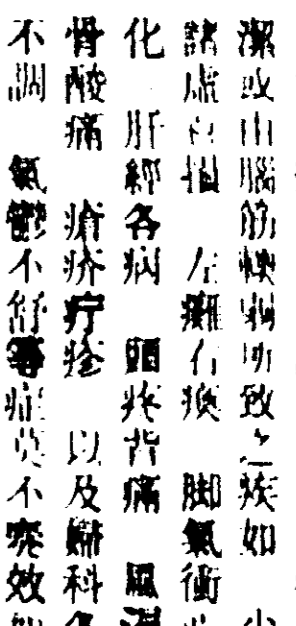 潔或由腦筋軟弱所致之疾如少
諸虛百損 左癱右瘓 脚氣衝心
化 肝經各病 頭疼背痛 風濕
骨酸痛 瘡疥疔疹 以及婦科各
不調 氣鬱不舒等症莫不奏效如